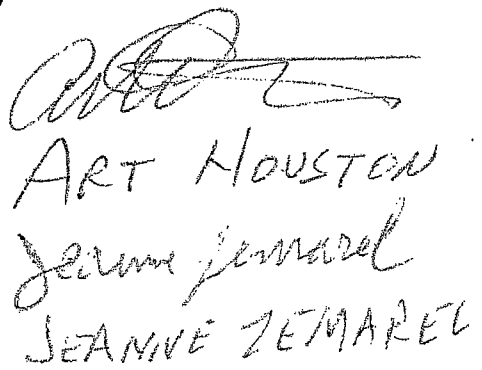 ART HOUSTON
Jeanne Zemarel
JEANNE ZEMAREL